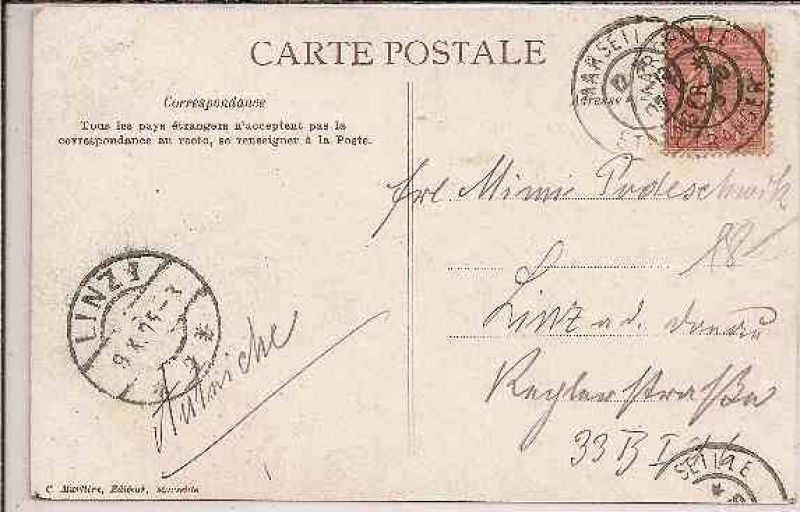 CARTE POSTALE
Correspondance
Tous les pays étrangers n'acceptent pas la
correspondance au recto, se renseigner à la Poste.
Adresse
MARSEILLE
ETRANGER
frl Mimi Podeschwik
18
Linz a. d. Donau
Reglerstraße
33 B I
LINZ 1
9 X 05-3
Autriche
SEILLE